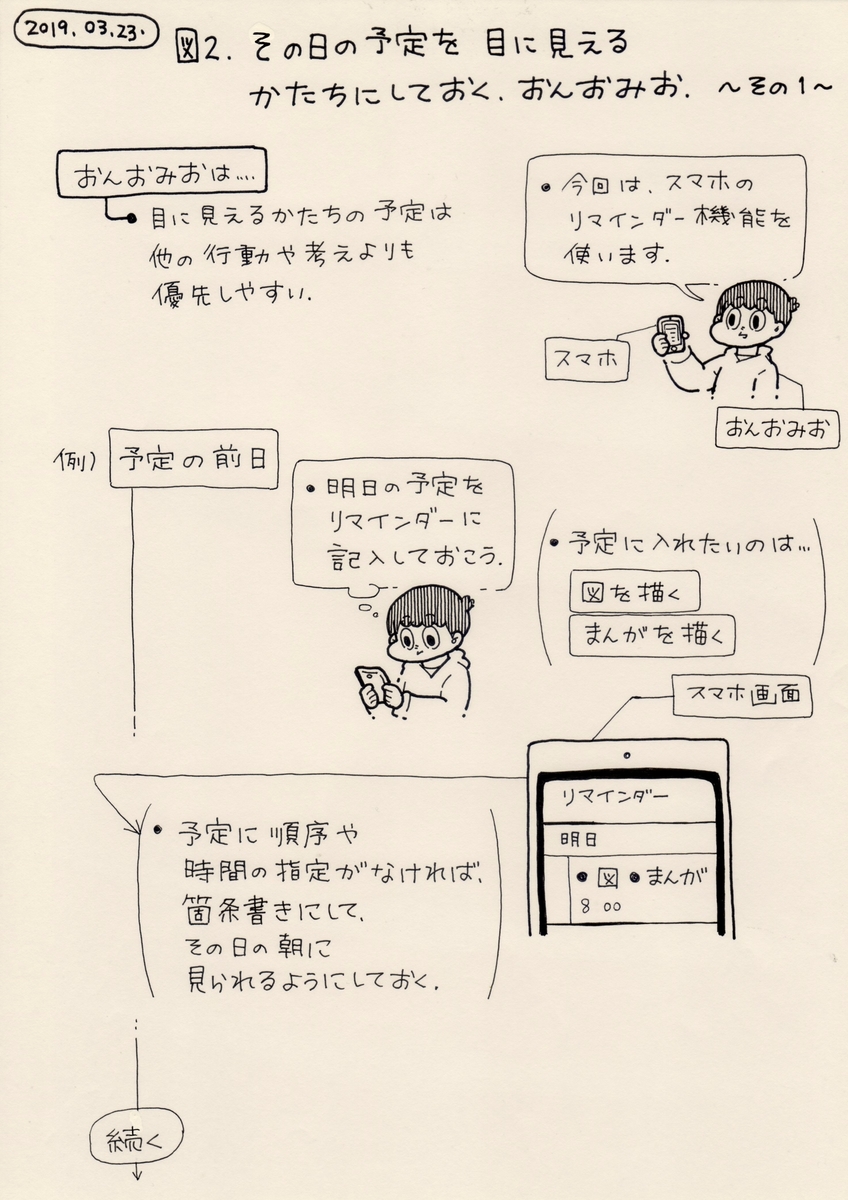 2019.03.23.
図2. その日の予定を 目に見える
かたちにしておく、おんおみお. 〜その1〜
おんおみおは....
• 目に見えるかたちの予定は
他の行動や考えよりも
優先しやすい.
• 今回は、スマホの
リマインダー機能を
使います.
スマホ
おんおみお
例) 予定の前日
• 明日の予定を
リマインダーに
記入しておこう.
• 予定に入れたいのは...
図を描く
まんがを描く
スマホ画面
リマインダー
明日
• 図 • まんが
8 00
• 予定に順序や
時間の指定がなければ、
箇条書きにして、
その日の朝に
見られるようにしておく.
続く